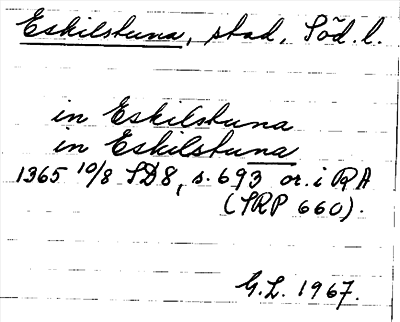 Eskilstuna, stad, Söd. l.
in Eskilstuna
in Eskilstuna
1365 10/8 SD8, s. 693 or. i RA
(SRP 660).
G.L. 1967.